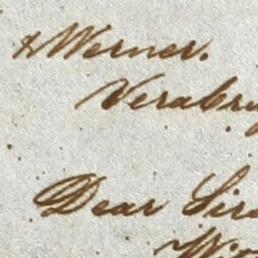 & Werner.
Verabru
Dear Sirs